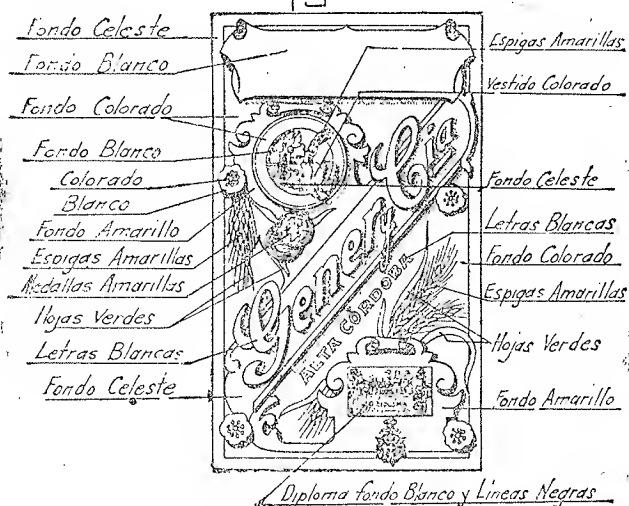 Fondo Celeste
Fondo Blanco
Fondo Colorado
Fondo Blanco
Colorado
Blanco
Fondo Amarillo
Espigas Amarillas
Medallas Amarillas
Hojas Verdes
Letras Blancas
Fondo Celeste
Genera y Cia
ALTA CÓRDOBA
Espigas Amarillas
Vestido Colorado
Fondo Celeste
Letras Blancas
Fondo Colorado
Espigas Amarillas
Hojas Verdes
Fondo Amarillo
Diploma fondo Blanco y Lineas Negras